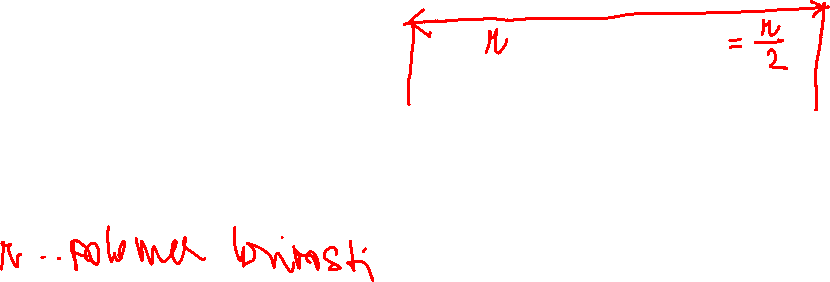 r = r/2
r .. polomer krivosti